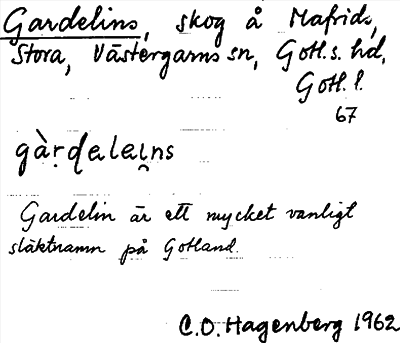 Gardelins, skog å Mafrids,
Stora, Västergarns sn, Gotl. s. hd,
Gotl. l.
67
gàṛḍalaı̯ns
Gardelin är ett mycket vanligt
släktnamn på Gotland.
C.O. Hagenberg 1962